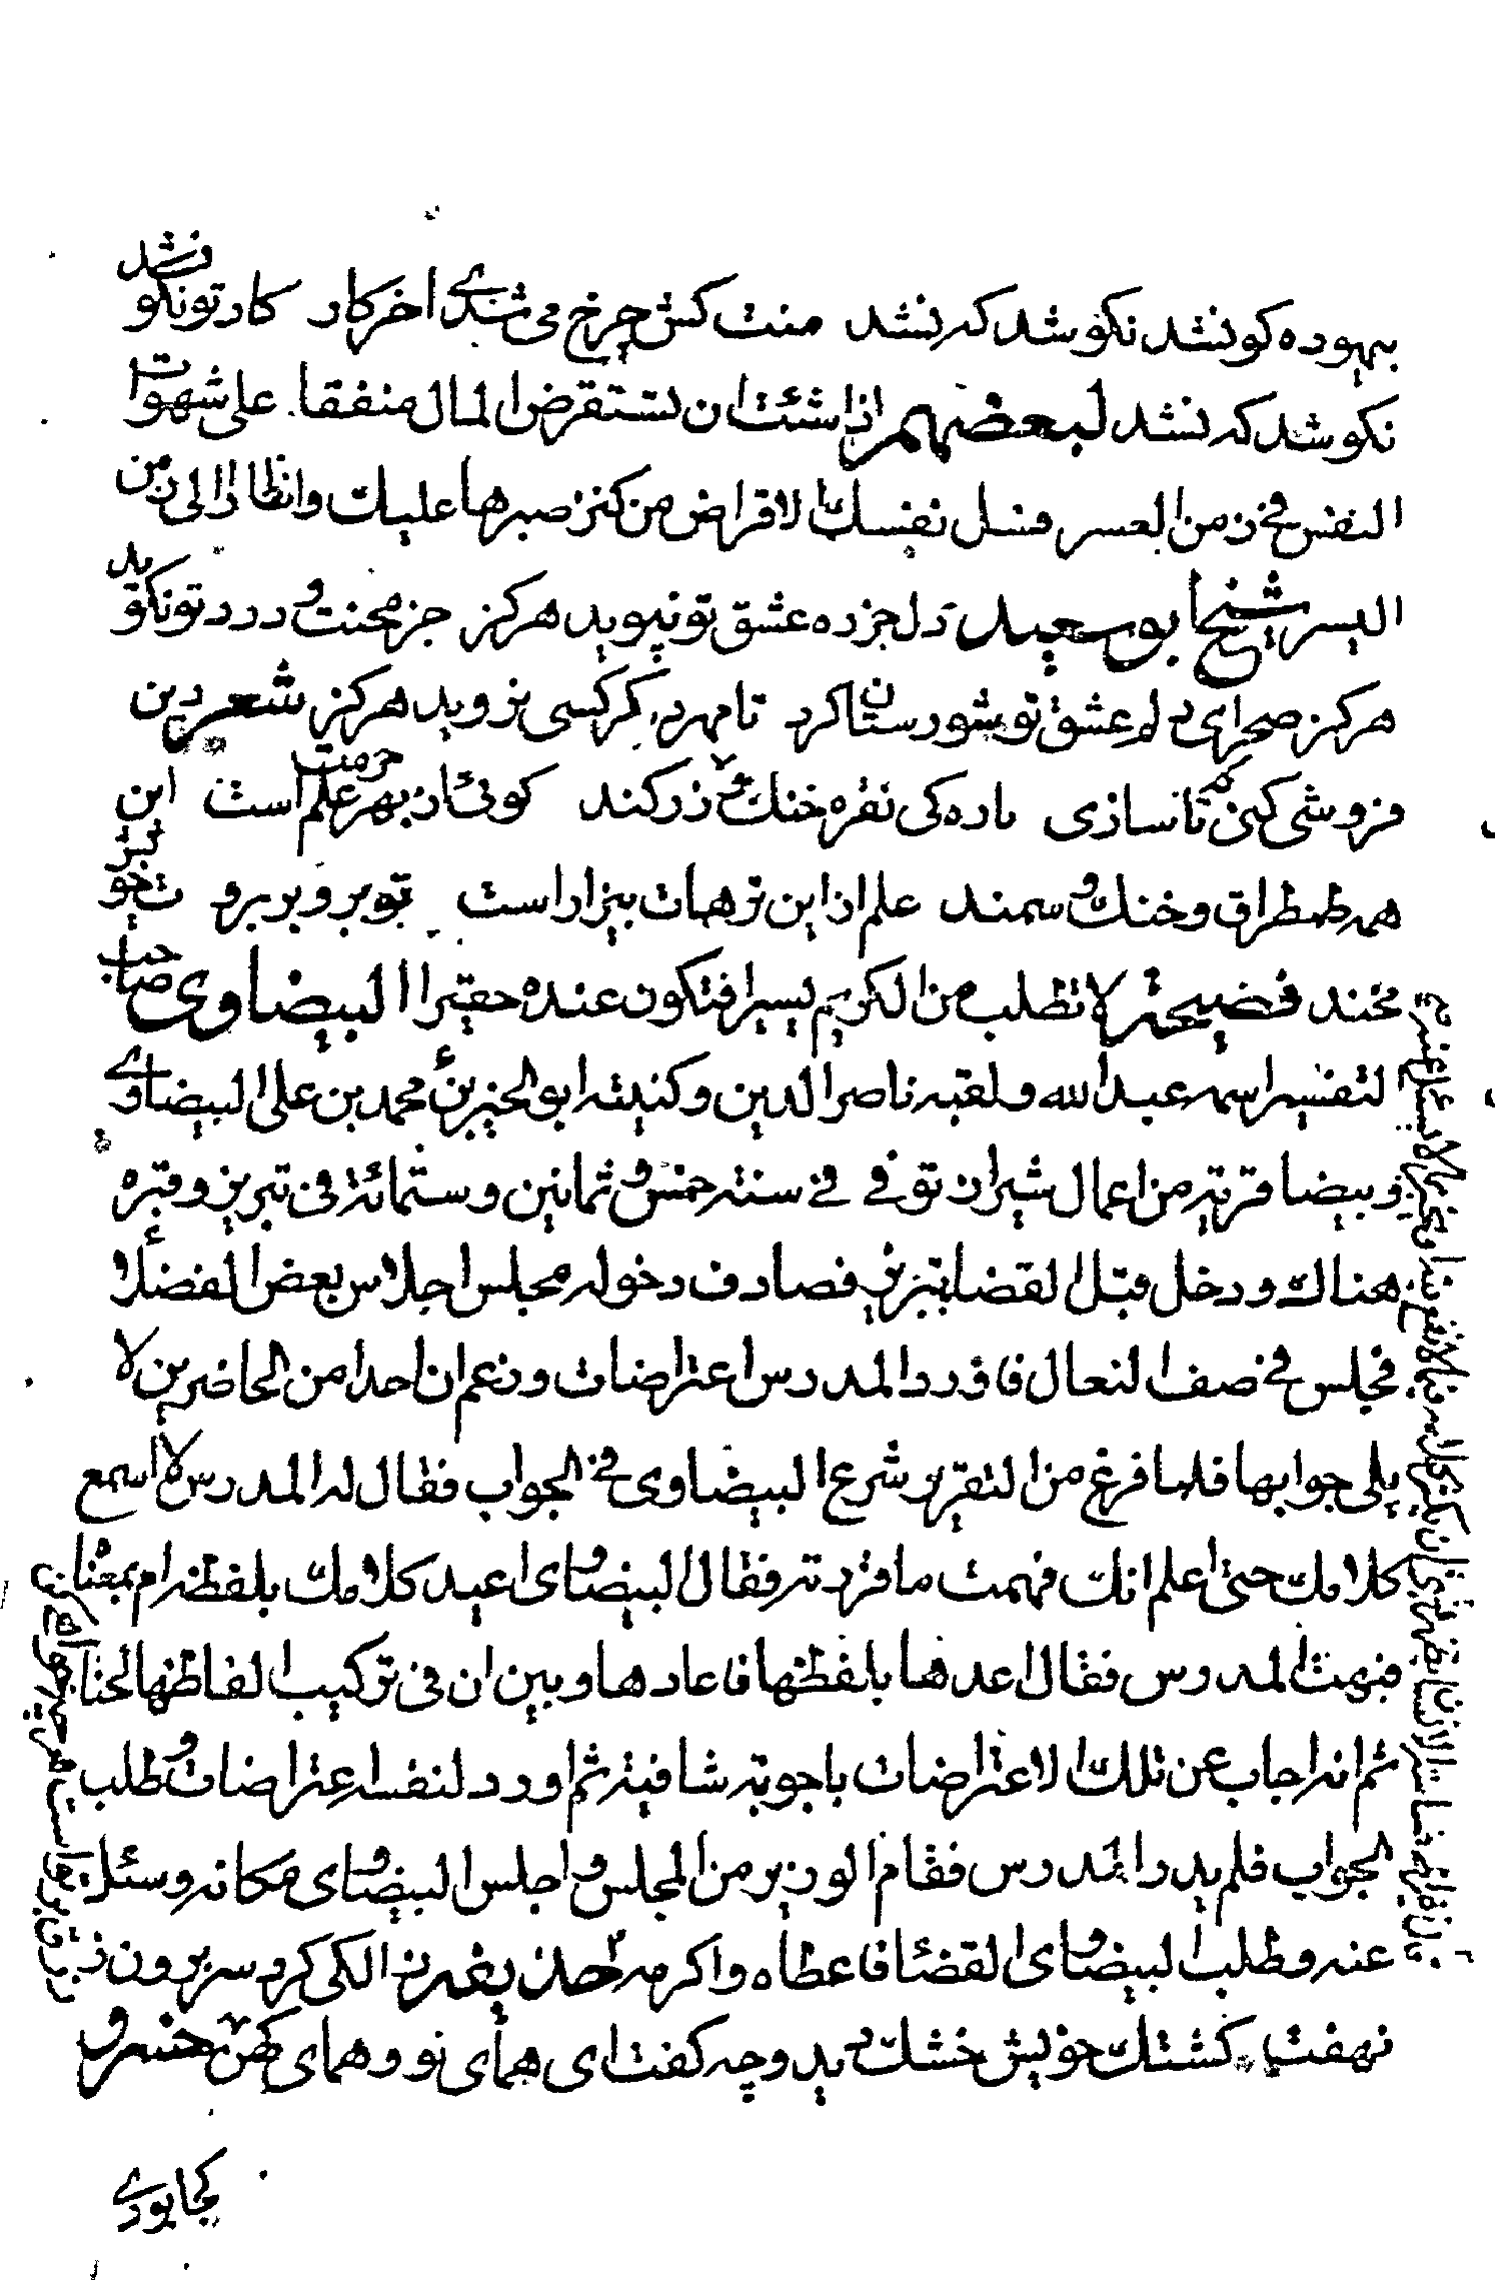 بیهوده کو نشد نکو شد که نشد منت کش چرخ می شدی اخر کار کار تو نکو نشد
نکو شد که نشد لبعضهم اذا شئت ان تستقرض المال منفقا علی شهوات
النفس فی زمن العسر فسل نفسک الاقراض من کنز صبرها علیک وانظارا الی زمن
الیسر شیخ ابو سعید دل جز ره عشق تو نپوید هرکز جز محنت و درد تو نکوید
هرکز صحرای دلم عشق تو شورستان کرد تا مهر دکر کسی نروید هرکز شعر دین
فروشی کنی که تا سازی باره کی نقره خنک و زر کند کوئی از بهر حرمت علم است این
همه طمطراق و خنک و سمند علم از این ترهات بیزار است تو برو بر بروت خویش بخند
فضیحة لا تطلب من الکریم یسیرا فتکون عنده حقیرا البیضاوی صاحب
التفسیر اسمه عبدالله ولقبه ناصر الدین وکنیته ابو الخیر بن محمد بن علی البیضاوی
وبیضا قریة من اعمال شیراز توفی فی سنة خمس وثمانین وستمائة فی تبریز وقبره
هناک ودخل قبل القضا بتبریز فصادف دخوله مجلس اجلاس بعض الفضلاء
فجلس فی صف النعال فاورد المدرس اعتراضات وزعم ان احدا من الحاضرین لا
یلی جوابها فلما فرغ من التقریر شرع البیضاوی فی الجواب فقال له المدرس لا اسمع
کلامک حتی اعلم انک فهمت ما قررته فقال البیضاوی اعید کلامک بلفظه ام بمعناه
فبهت المدرس فقال اعدها بلفظها فاعادها وبین ان فی ترکیب الفاظها لحنا
ثم انه اجاب عن تلک الاعتراضات باجوبة شافیة ثم اورد لنفسه اعتراضات وطلب
الجواب فلم یدر المدرس فقام الوزیر من المجلس واجلس البیضاوی مکانه وسئل
عنه وطلب البیضاوی القضا فاعطاه واکرمه الکی کرد سر برون ز
نهفت کشتک خویش خشک دید و چه کفت ای همای نو و همای کهن خسرو
کجا بودی